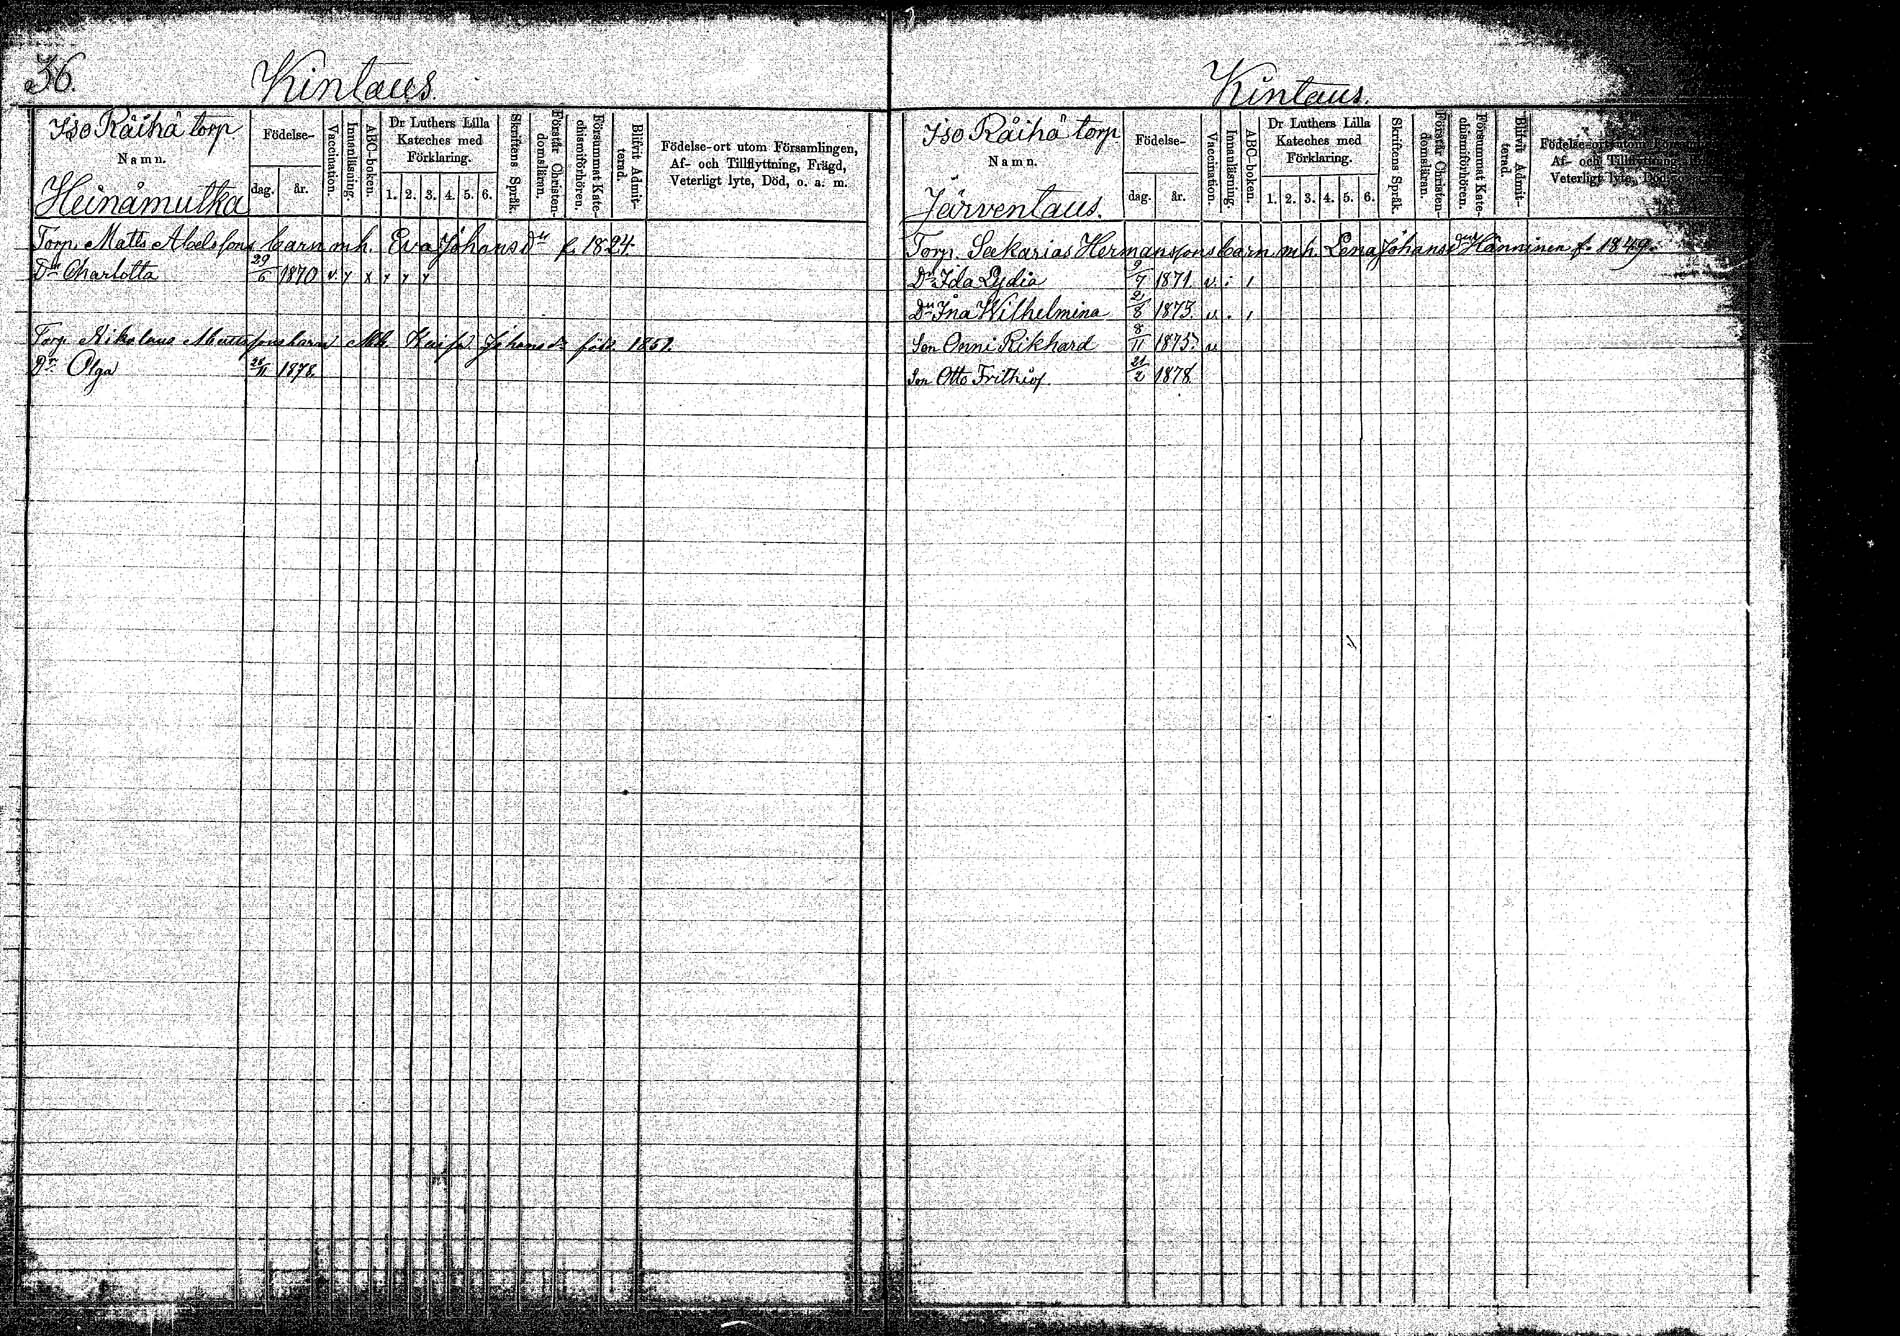 36.
Kintaus.
Iso Räihä torp
Namn.
Födelse-
dag. år.
Vaccination.
Innanläsning.
ABC-boken.
Dr Luthers Lilla Kateches med Förklaring.
1. 2. 3. 4. 5. 6.
Skriftens Språk.
Förstår Christendomsläran.
Försummat Katechismiförhören.
Blifvit Admitterad.
Födelse-ort utom Församlingen,
Af- och Tillflyttning, Frägd,
Veterligt lyte, Död, o. a. m.
Heinämutka
Torp. Matts Abelssons barn m.h. Eva Johansdr f. 1824.
Dr Charlotta 29/6 1870 v. y x y y y
Torp. Nikolaus Mattssons barn Mh. Kaisa Johansdr född 1851.
Dr Olga 28/11 1878.
Kintaus.
Iso Räihä torp
Namn.
Födelse-
dag. år.
Vaccination.
Innanläsning.
ABC-boken.
Dr Luthers Lilla Kateches med Förklaring.
1. 2. 3. 4. 5. 6.
Skriftens Språk.
Förstår Christendomsläran.
Försummat Katechismiförhören.
Blifvit Admitterad.
Födelse-ort utom
Af- och Tillflyttning,
Veterligt lyte, Död
Järventaus.
Torp. Sakarias Hermanssons barn m.h. Lena Johansdr Hänninen f. 1849.
Dr Ida Lydia 9/7 1871. v.
Dr Ina Wilhelmina 2/8 1873. v.
Son Onni Rikhard 8/11 1875. v
Son Otto Frithiof. 21/2 1878